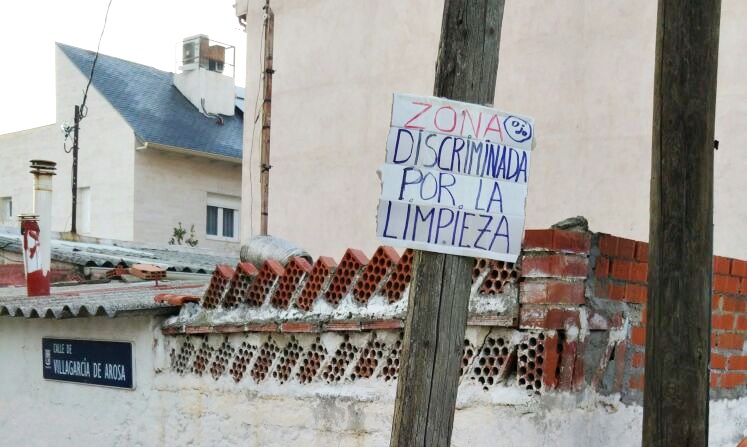 ZONA
DISCRIMINADA
POR.LA
LIMPIEZA
CALLE DE
VILLAGARCÍA DE AROSA